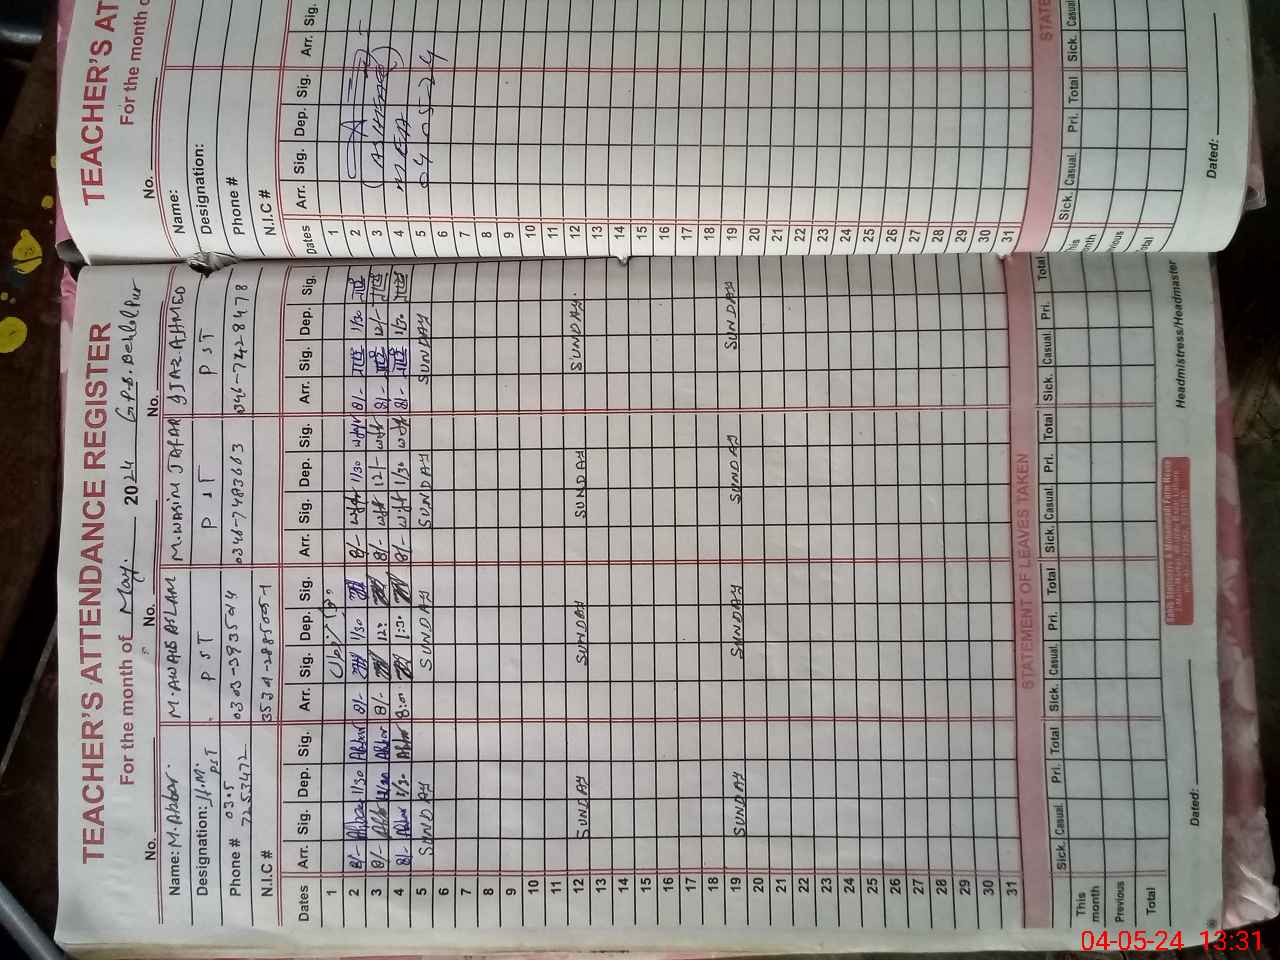 TEACHER'S ATTENDANCE REGISTER
For the month of May. 2024 G.P.S. Behlolpur
No. No. No.
Name: M. Akbar. M. AWAIS ASLAM M. WASIM JAFAR IJAZ AHMED
Designation: H.M. PST PST PST PST
Phone # 0305 7253472 0303-3935014 0346-7483663 0346-7428478
N.I.C #
Dates Arr. Sig. Dep. Sig. Arr. Sig. Dep. Sig. Arr. Sig. Dep. Sig. Arr. Sig. Dep. Sig.
1
2 8/- Akbar 1/30 Akbar 8/- 1/30 8/- 1/30 8/- 1/30
3 8/- Akbar Akbar 8/- 12: 8/- 12/- 8/- 12/-
4 8/- Akbar 1/30 Akbar 8:00 1:30 8/- 1/30 8/- 1/30
5 SUNDAY SUNDAY SUNDAY SUNDAY
6
7
8
9
10
11
12 SUNDAY SUNDAY SUNDAY SUNDAY
13
14
15
16
17
18
19 SUNDAY SUNDAY SUNDAY SUNDAY
20
21
22
23
24
25
26
27
28
29
30
31
STATEMENT OF LEAVES TAKEN
Sick. Casual. Pri. Total Sick. Casual. Pri. Total Sick. Casual. Pri. Total Sick. Casual. Pri. Total
This month
Previous
Total
Dated: Headmistress/Headmaster
TEACHER'S AT
For the month o
No.
Name:
Designation:
Phone #
N.I.C #
Dates Arr. Sig. Dep. Sig. Arr. Sig.
1
2
3
4 MEA
5 04-05-24
6
7
8
9
10
11
12
13
14
15
16
17
18
19
20
21
22
23
24
25
26
27
28
29
30
31
STATE
Sick. Casual. Pri. Total Sick. Casual
This
onth
vious
otal
Dated:
04-05-24 13:31